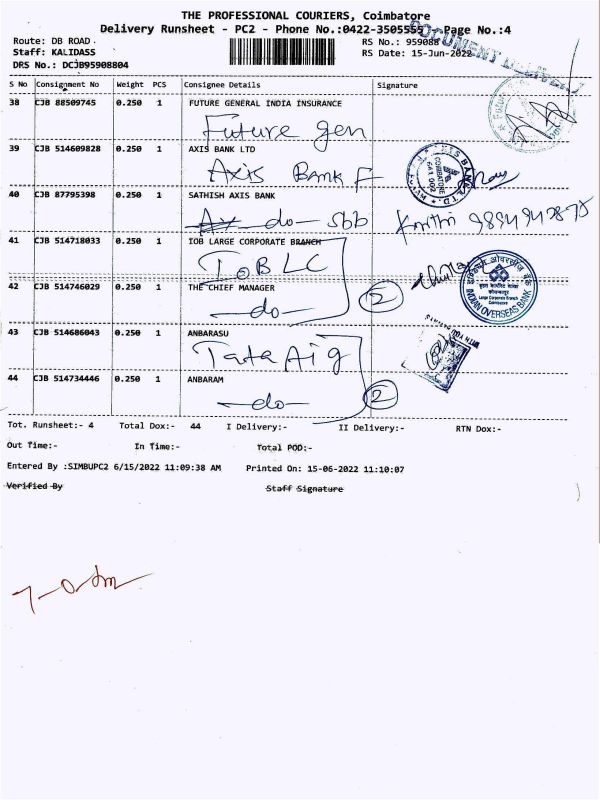 THE PROFESSIONAL COURIERS, Coimbatore
Delivery Runsheet - PC2 - Phone No.:0422-3505555 Page No.:4
Route: DB ROAD
RS No.: 959088
Staff: KALIDASS
RS Date: 15-Jun-2022
DRS No.: DCJB95908804
DOCUMENT
S No Consignment No Weight PCS Consignee Details Signature
38 CJB 88509745 0.250 1 FUTURE GENERAL INDIA INSURANCE
Future gen
39 CJB 514609828 0.250 1 AXIS BANK LTD
Axis Bank F
COIMBATORE
641 002
40 CJB 87795398 0.250 1 SATHISH AXIS BANK
do
41 CJB 514718033 0.250 1 IOB LARGE CORPORATE BRANCH
IOB LC
42 CJB 514746029 0.250 1 THE CHIEF MANAGER
do
2
Large Corporate Branch
Coimbatore
INDIAN OVERSEAS BANK
43 CJB 514686043 0.250 1 ANBARASU
Tata Aig
44 CJB 514734446 0.250 1 ANBARAM
do
2
Tot. Runsheet:- 4 Total Dox:- 44 I Delivery:- II Delivery:- RTN Dox:-
Out Time:- In Time:- Total POD:-
Entered By :SIMBUPC2 6/15/2022 11:09:38 AM Printed On: 15-06-2022 11:10:07
Verified By Staff Signature